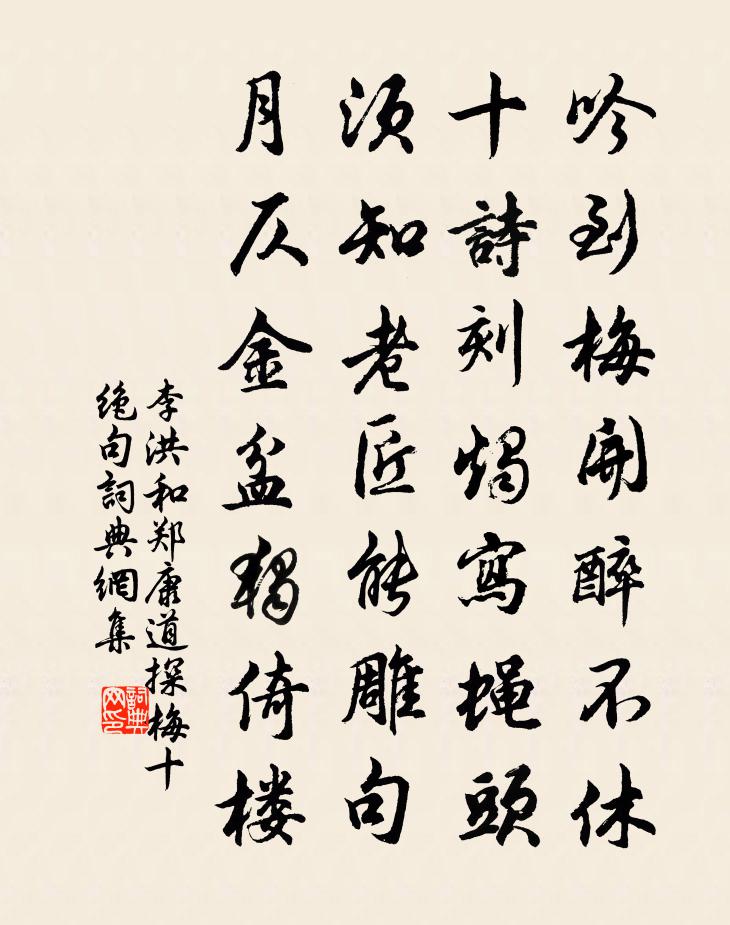 吟到梅開醉不休
十詩刻燭寫蝇頭
须知老匠能雕句
月仄金盆独倚楼
李洪和郑康道探梅十
绝句詞典網集
詞典
网印